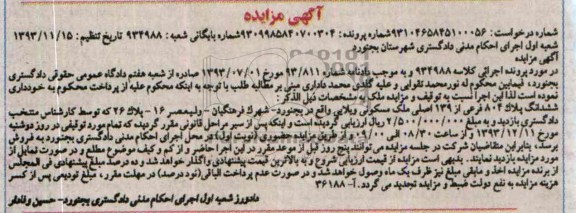 آگهی مزایده
شماره درخواست: ۹۳۱۰۴۶۵۸۴۵۱۰۰۰۵۶ شماره پرونده: ۹۳۰۹۹۸۵۸۴۰۷۰۰۳۰۴ شماره بایگانی شعبه: ۹۳۴۹۸۸ تاریخ تنظیم: ۱۳۹۳/۱۱/۱۵
شعبه اول اجرای احکام مدنی دادگستری شهرستان بجنورد
آگهی مزایده
در مورد پرونده اجرائی کلاسه ۹۳۴۹۸۸ و به موجب دادنامه شماره ۹۳/۸۱۱ مورخ ۱۳۹۳/۰۷/۰۱ صادره از شعبه هفتم دادگاه عمومی حقوقی دادگستری
بجنورد، فیمابین محکوم له نورمحمد تلوابی و علیه گلدی محمد داداری مبنی بر مطالبه طلب با توجه به اینکه محکوم علیه از پرداخت محکوم به خودداری
نموده است لذا این اجرا نسبت به توقیف و مزایده ملک به مشخصات ذیل الذکر:
ششدانگ پلاک ۸۰۴ فرعی از ۱۳۹ اصلی ملک مسکونی ویلایی واقع در بجنورد- شهرک فرهنگیان - ولیعصر ۱۶ - پلاک ۲۶ که توسط کارشناس منتخب
دادگستری بازدید و به مبلغ ۲/۵۰۰/۰۰۰/۰۰۰ ریال ارزیابی گردیده است و اینک پس از سیر مراحل قانونی مقرر گردیده که تمام مورد توقیفی در روز دوشنبه
مورخ ۱۳۹۳/۱۲/۱۱ از ساعت ۰۸/۳۰ الی ۰۹/۰۰ از طریق مزایده حضوری (نوبت اول) در محل اجرای احکام مدنی دادگستری بجنورد به فروش
برسد، بنابراین متقاضیان شرکت در جلسه مزایده می توانند پنج روز قبل از موعد مقرر در این اجرا حاضر و از کم و کیف موضوع مطلع و در صورت تمایل از
مورد مزایده بازدید نمایند. بدیهی است مزایده از قیمت ارزیابی شروع و به بالاترین قیمت پیشنهادی واگذار خواهد شد و ده درصد مبلغ پیشنهادی فی المجلس
از برنده مزایده اخذ و مابقی مبلغ نیز ظرف یک ماه وصول خواهد شد و در صورت عدم پرداخت الباقی (نود درصد) در مهلت مقرر، مبلغ تودیعی پس از کسر
هزینه مزایده به نفع دولت ضبط و مزایده تجدید می گردد. آ- ۳۶۱۸۸
دادورز شعبه اول اجرای احکام مدنی دادگستری بجنورد- حسین وفادار